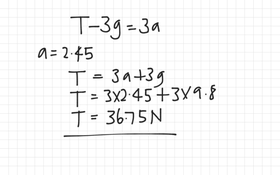 T-3g=3a
a=2.45
T = 3a+3g
T = 3×2.45+3×9.8
T = 36.75N